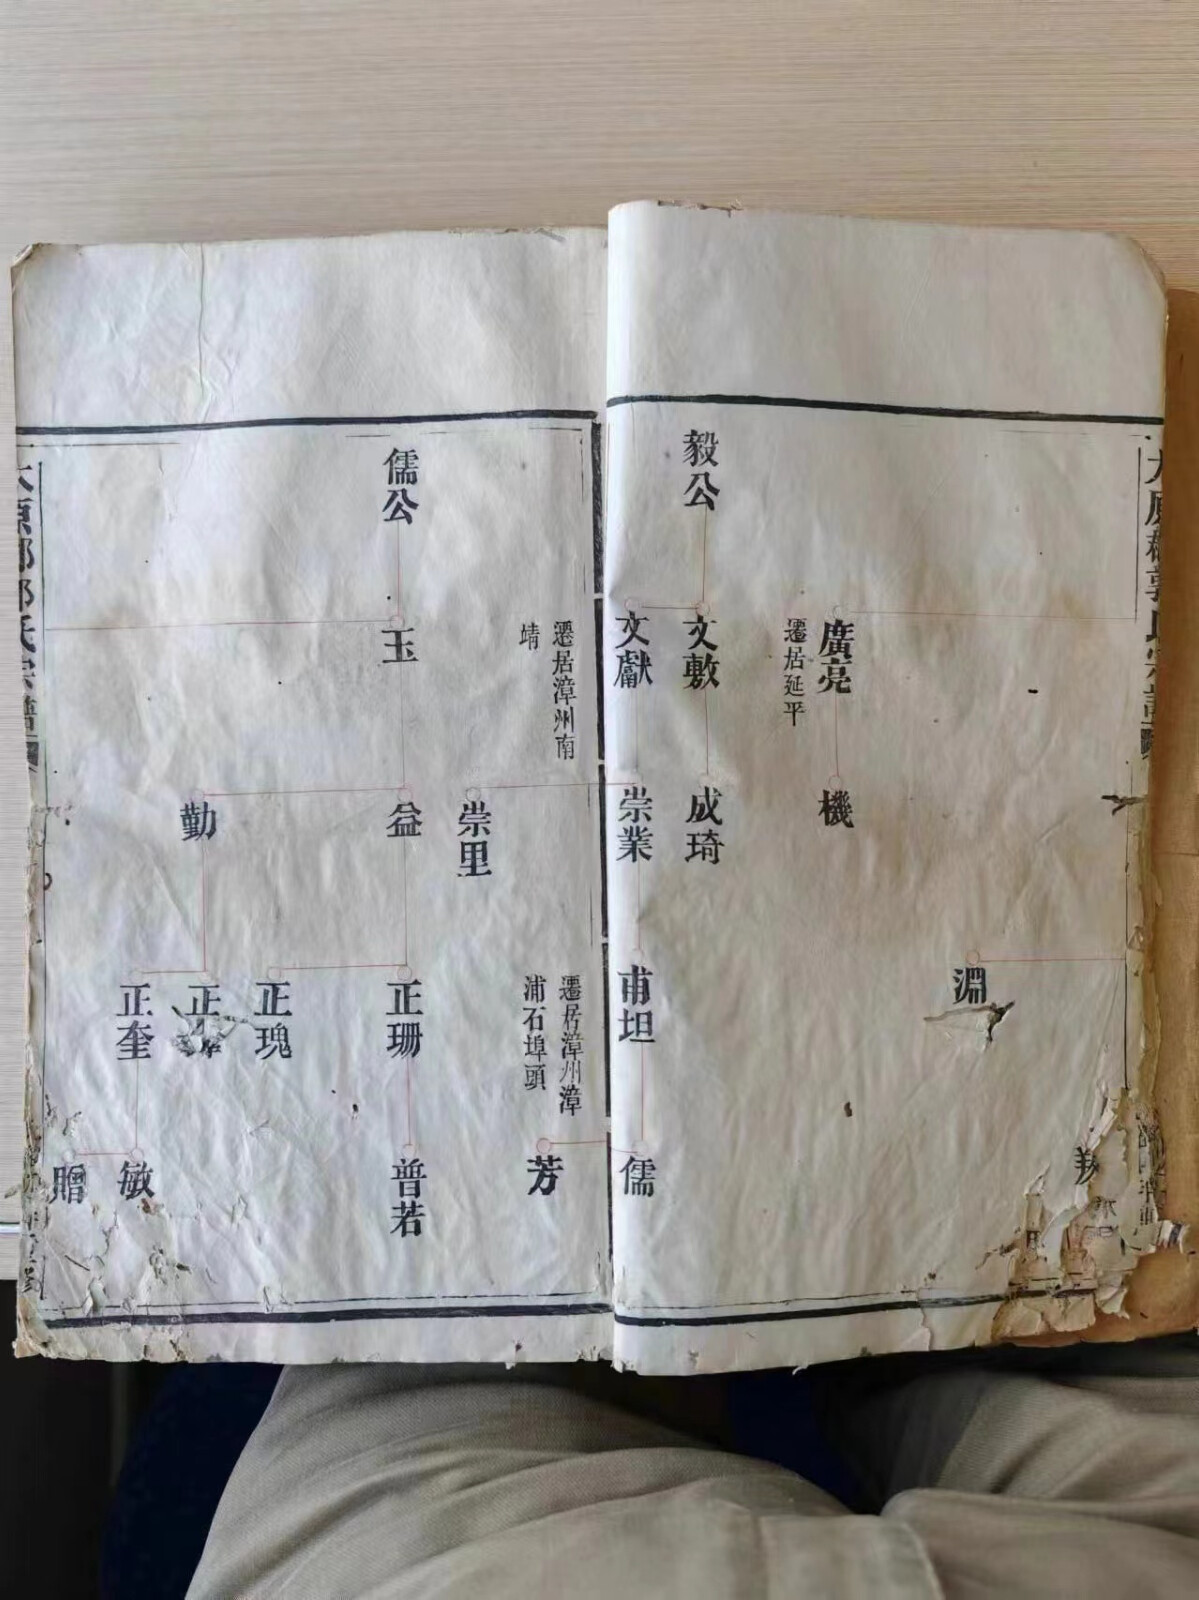 太原郡郭氏宗譜
毅公
廣亮
遷居延平
文敷
文獻
遷居漳州南
靖
機
成琦
崇業
崇里
淵
甫坦
遷居漳州漳
浦石埠頭
儒
芳
儒公
玉
益
勤
正珊
正瑰
正
正奎
普若
敏
贈
太原郡郭氏宗譜